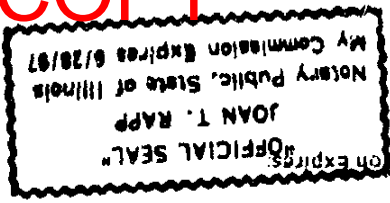 COPY
"OFFICIAL SEAL"
JOAN T. RAPP
Notary Public, State of Illinois
My Commission Expires 6/28/97
on Expires: